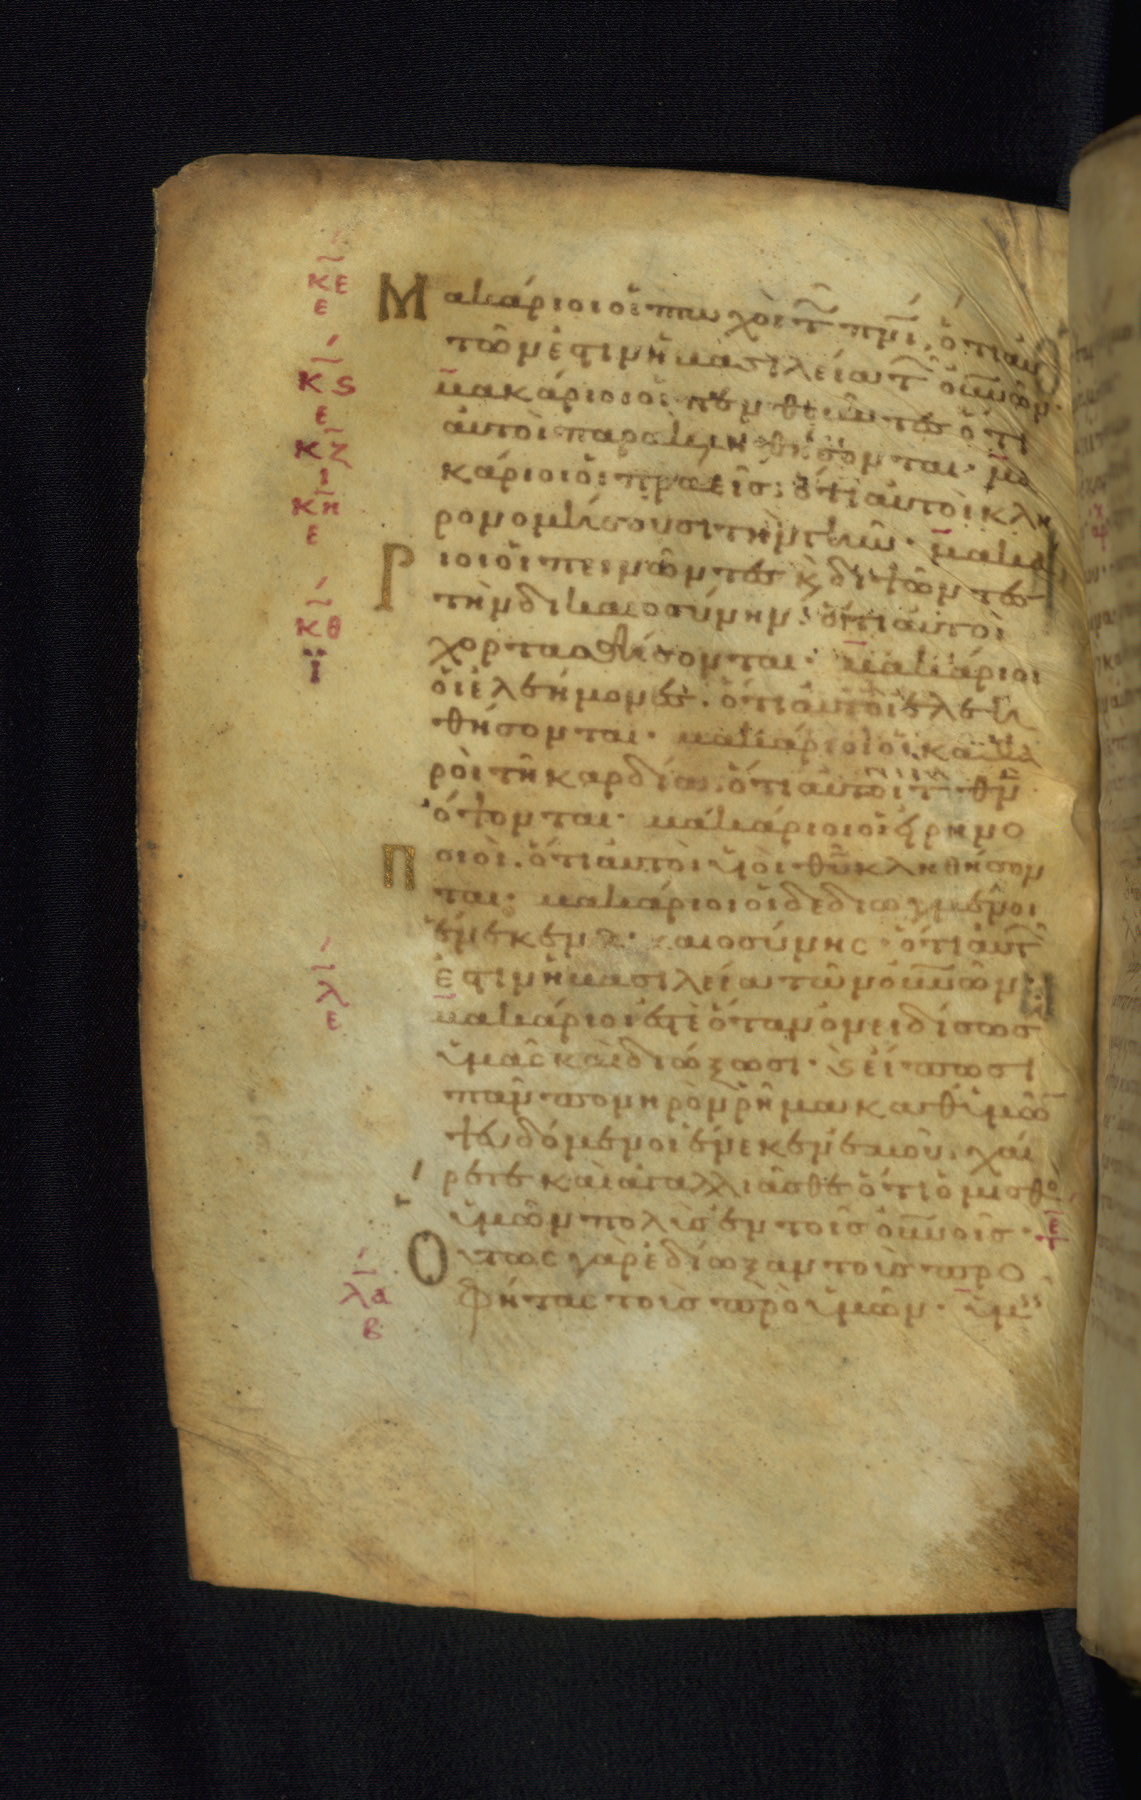 κε
ε
Μακάριοι οἱ πτωχοὶ τῶ πνι, ὅτι αυ
των ἐστιν ἡ βασιλεία τῶν οὐνῶν.
κς
ε
μακάριοι οἱ πενθοῦντες ὅτι
κζ
ι
αὐτοὶ παρακληθήσονται. μα
κάριοι οἱ πραεῖς, ὅτι αὐτοὶ κλη
κη
ε
ρονομήσουσι τὴν γῆν. μακα
ριοι οἱ πεινῶντες κ διψῶντες
κθ
ϊ
τὴν δικαιοσύνην. ὅτι αὐτοὶ
χορτασθήσονται. μακάριοι
οἱ ἐλεήμονες. ὅτι αὐτοὶ ἐλεη
θήσονται. μακάριοι οἱ καθα
ροὶ τῆ καρδία. ὅτι αὐτοὶ τ θν
ὄψονται. μακάριοι οἱ εἰρηνο
ποιοὶ. ὅτι αὐτοὶ υἱοὶ θυ κληθήσον
ται. μακάριοι οἱ δεδιωγμένοι
ἕνεκεν δικαιοσύνης. ὅτι αὐτ
ἐστιν ἡ βασιλεία τῶν οὐνῶν.
λ
ε
μακάριοί ἐστε ὅταν ὀνειδίσωσ
ὑμᾶς καὶ διώξωσι. κ εἴπωσι
πᾶν πονηρὸν ῥῆμα καθ ὑμῶν
ψευδόμενοι ἕνεκεν ἐμοῦ. χαί
ρετε καὶ ἀγαλλιᾶσθε ὅτι ὁ μισθο
ὑμῶν πολὺς ἐν τοῖς οὐνοῖς.
Οὕτως γὰρ ἐδίωξαν τοὺς προ
λα
β
φήτας τοὺς πρὸ ὑμῶν. ὑμεῖς